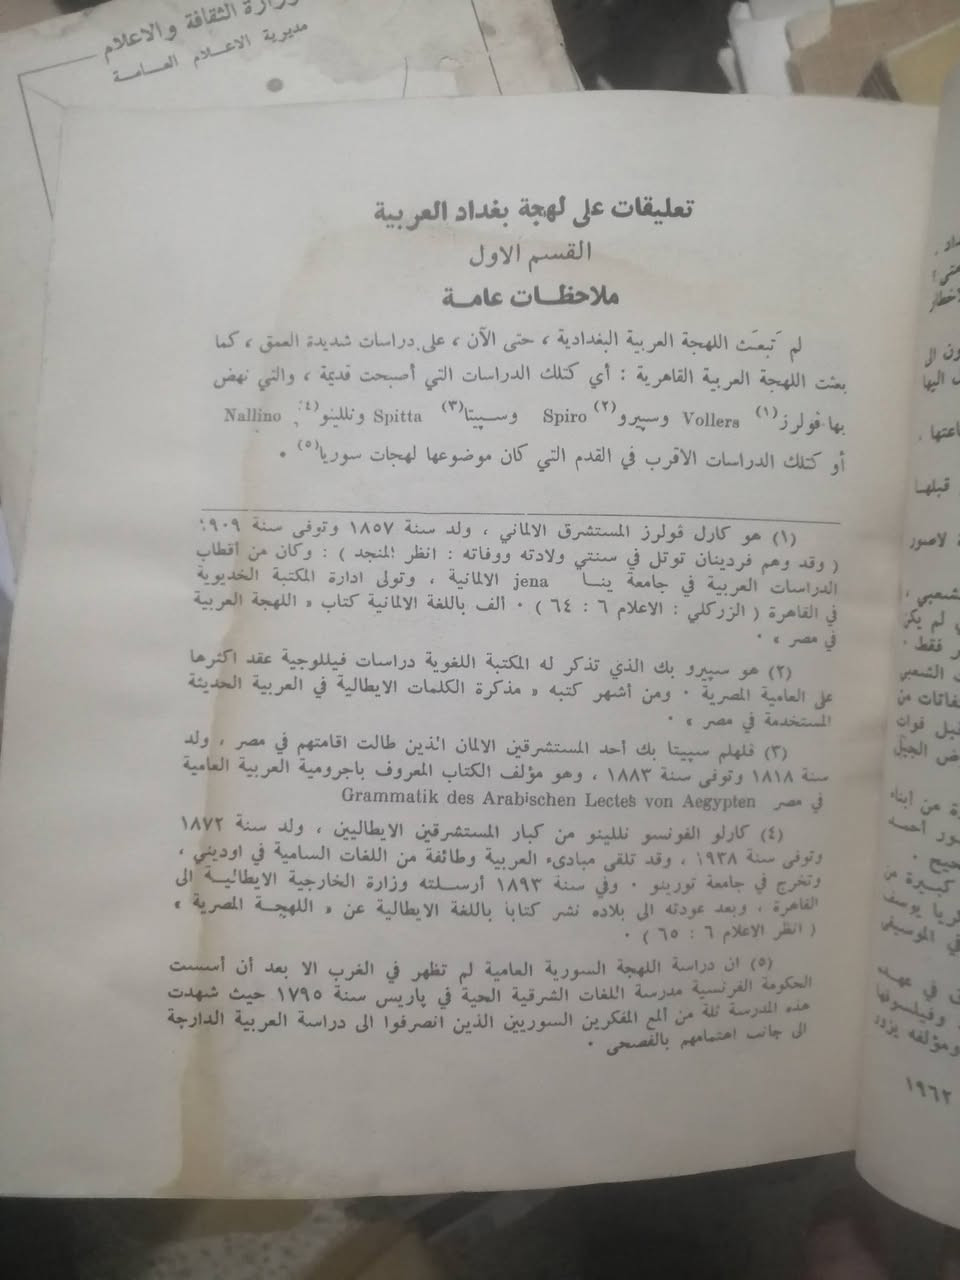 وزارة الثقافة والاعلام
مديرية الاعلام العامة
تعليقات على لهجة بغداد العربية
القسم الاول
ملاحظات عامة
لم تبعَث اللهجة العربية البغدادية ، حتى الآن ، على دراسات شديدة العمق ، كما
بعثت اللهجة العربية القاهرية : أي كتلك الدراسات التي أصبحت قديمة ، والتي نهض
بها ڤولرز(١) Vollers وسپيرو(٢) Spiro وسپيتا(٣) Spitta ونللينو(٤) Nallino
أو كتلك الدراسات الاقرب في القدم التي كان موضوعها لهجات سوريا(٥) .
(١) هو كارل ڤولرز المستشرق الالماني ، ولد سنة ١٨٥٧ وتوفى سنة ١٩٠٩
( وقد وهم فردينان توتل في سنتي ولادته ووفاته : انظر المنجد ) : وكان من أقطاب
الدراسات العربية في جامعة ينا jena الالمانية ، وتولى ادارة المكتبة الخديوية
في القاهرة ( الزركلي : الاعلام ٦ : ٦٤ ) . ألف باللغة الالمانية كتاب « اللهجة العربية
في مصر » .
(٢) هو سپيرو بك الذي تذكر له المكتبة اللغوية دراسات فيللوجية عقد اكثرها
على العامية المصرية . ومن أشهر كتبه « مذكرة الكلمات الايطالية في العربية الحديثة
المستخدمة في مصر » .
(٣) فلهلم سپيتا بك أحد المستشرقين الالمان الذين طالت اقامتهم في مصر ، ولد
سنة ١٨١٨ وتوفى سنة ١٨٨٣ ، وهو مؤلف الكتاب المعروف باجرومية العربية العامية
في مصر Grammatik des Arabischen Lectes von Aegypten
(٤) كارلو الفونسو نللينو من كبار المستشرقين الايطاليين ، ولد سنة ١٨٧٢
وتوفى سنة ١٩٣٨ ، وقد تلقى مبادىء العربية وطائفة من اللغات السامية في اوديني ،
وتخرج في جامعة تورينو . وفي سنة ١٨٩٣ أرسلته وزارة الخارجية الايطالية الى
القاهرة ، وبعد عودته الى بلاده نشر كتابا باللغة الايطالية عن « اللهجة المصرية »
( انظر الاعلام ٦ : ٦٥ ) .
(٥) ان دراسة اللهجة السورية العامية لم تظهر في الغرب الا بعد أن أسست
الحكومة الفرنسية مدرسة اللغات الشرقية الحية في پاريس سنة ١٧٩٥ حيث شهدت
هذه المدرسة ثلة من ألمع المفكرين السوريين الذين انصرفوا الى دراسة العربية الدارجة
الى جانب اهتمامهم بالفصحى .
ون الى
اليها
قبلها
لم يكن
ر فقط .
الشعبي
من
فوات
ة من ابناء
ور أحمد
كبيرة من
ريا يوسف
في الموسيقى
في عهد
وفيلسوفها
ومؤلفه يزور
١٩٦٢